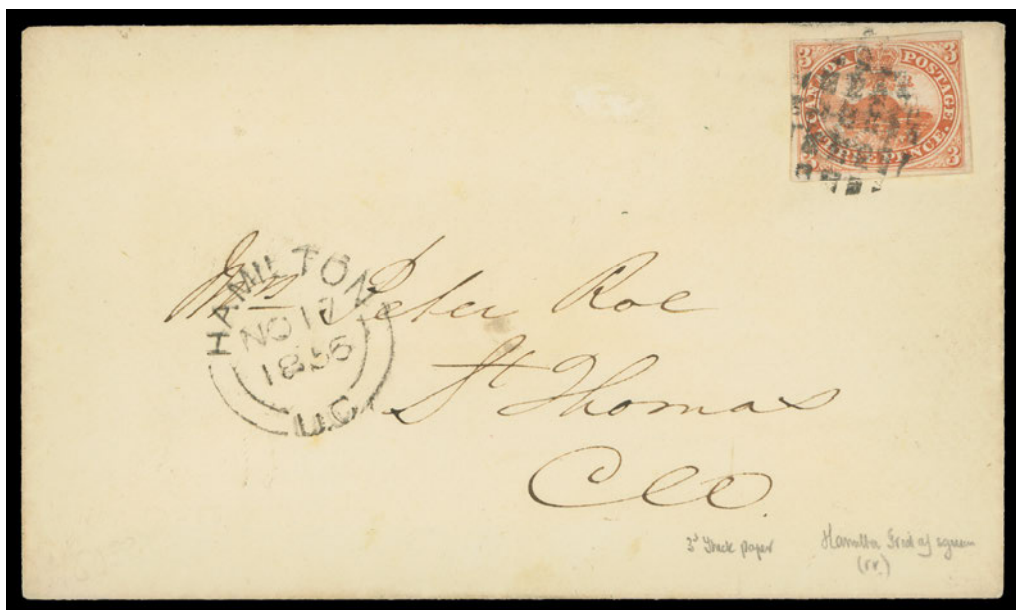 3 3
CANADA POSTAGE.
THREE PENCE.
3 3
HAMILTON
NO 17
1856
U.C
Mrs Peter Roe
St Thomas
3d thick paper
Hamilton Grid of squares
(rr.)